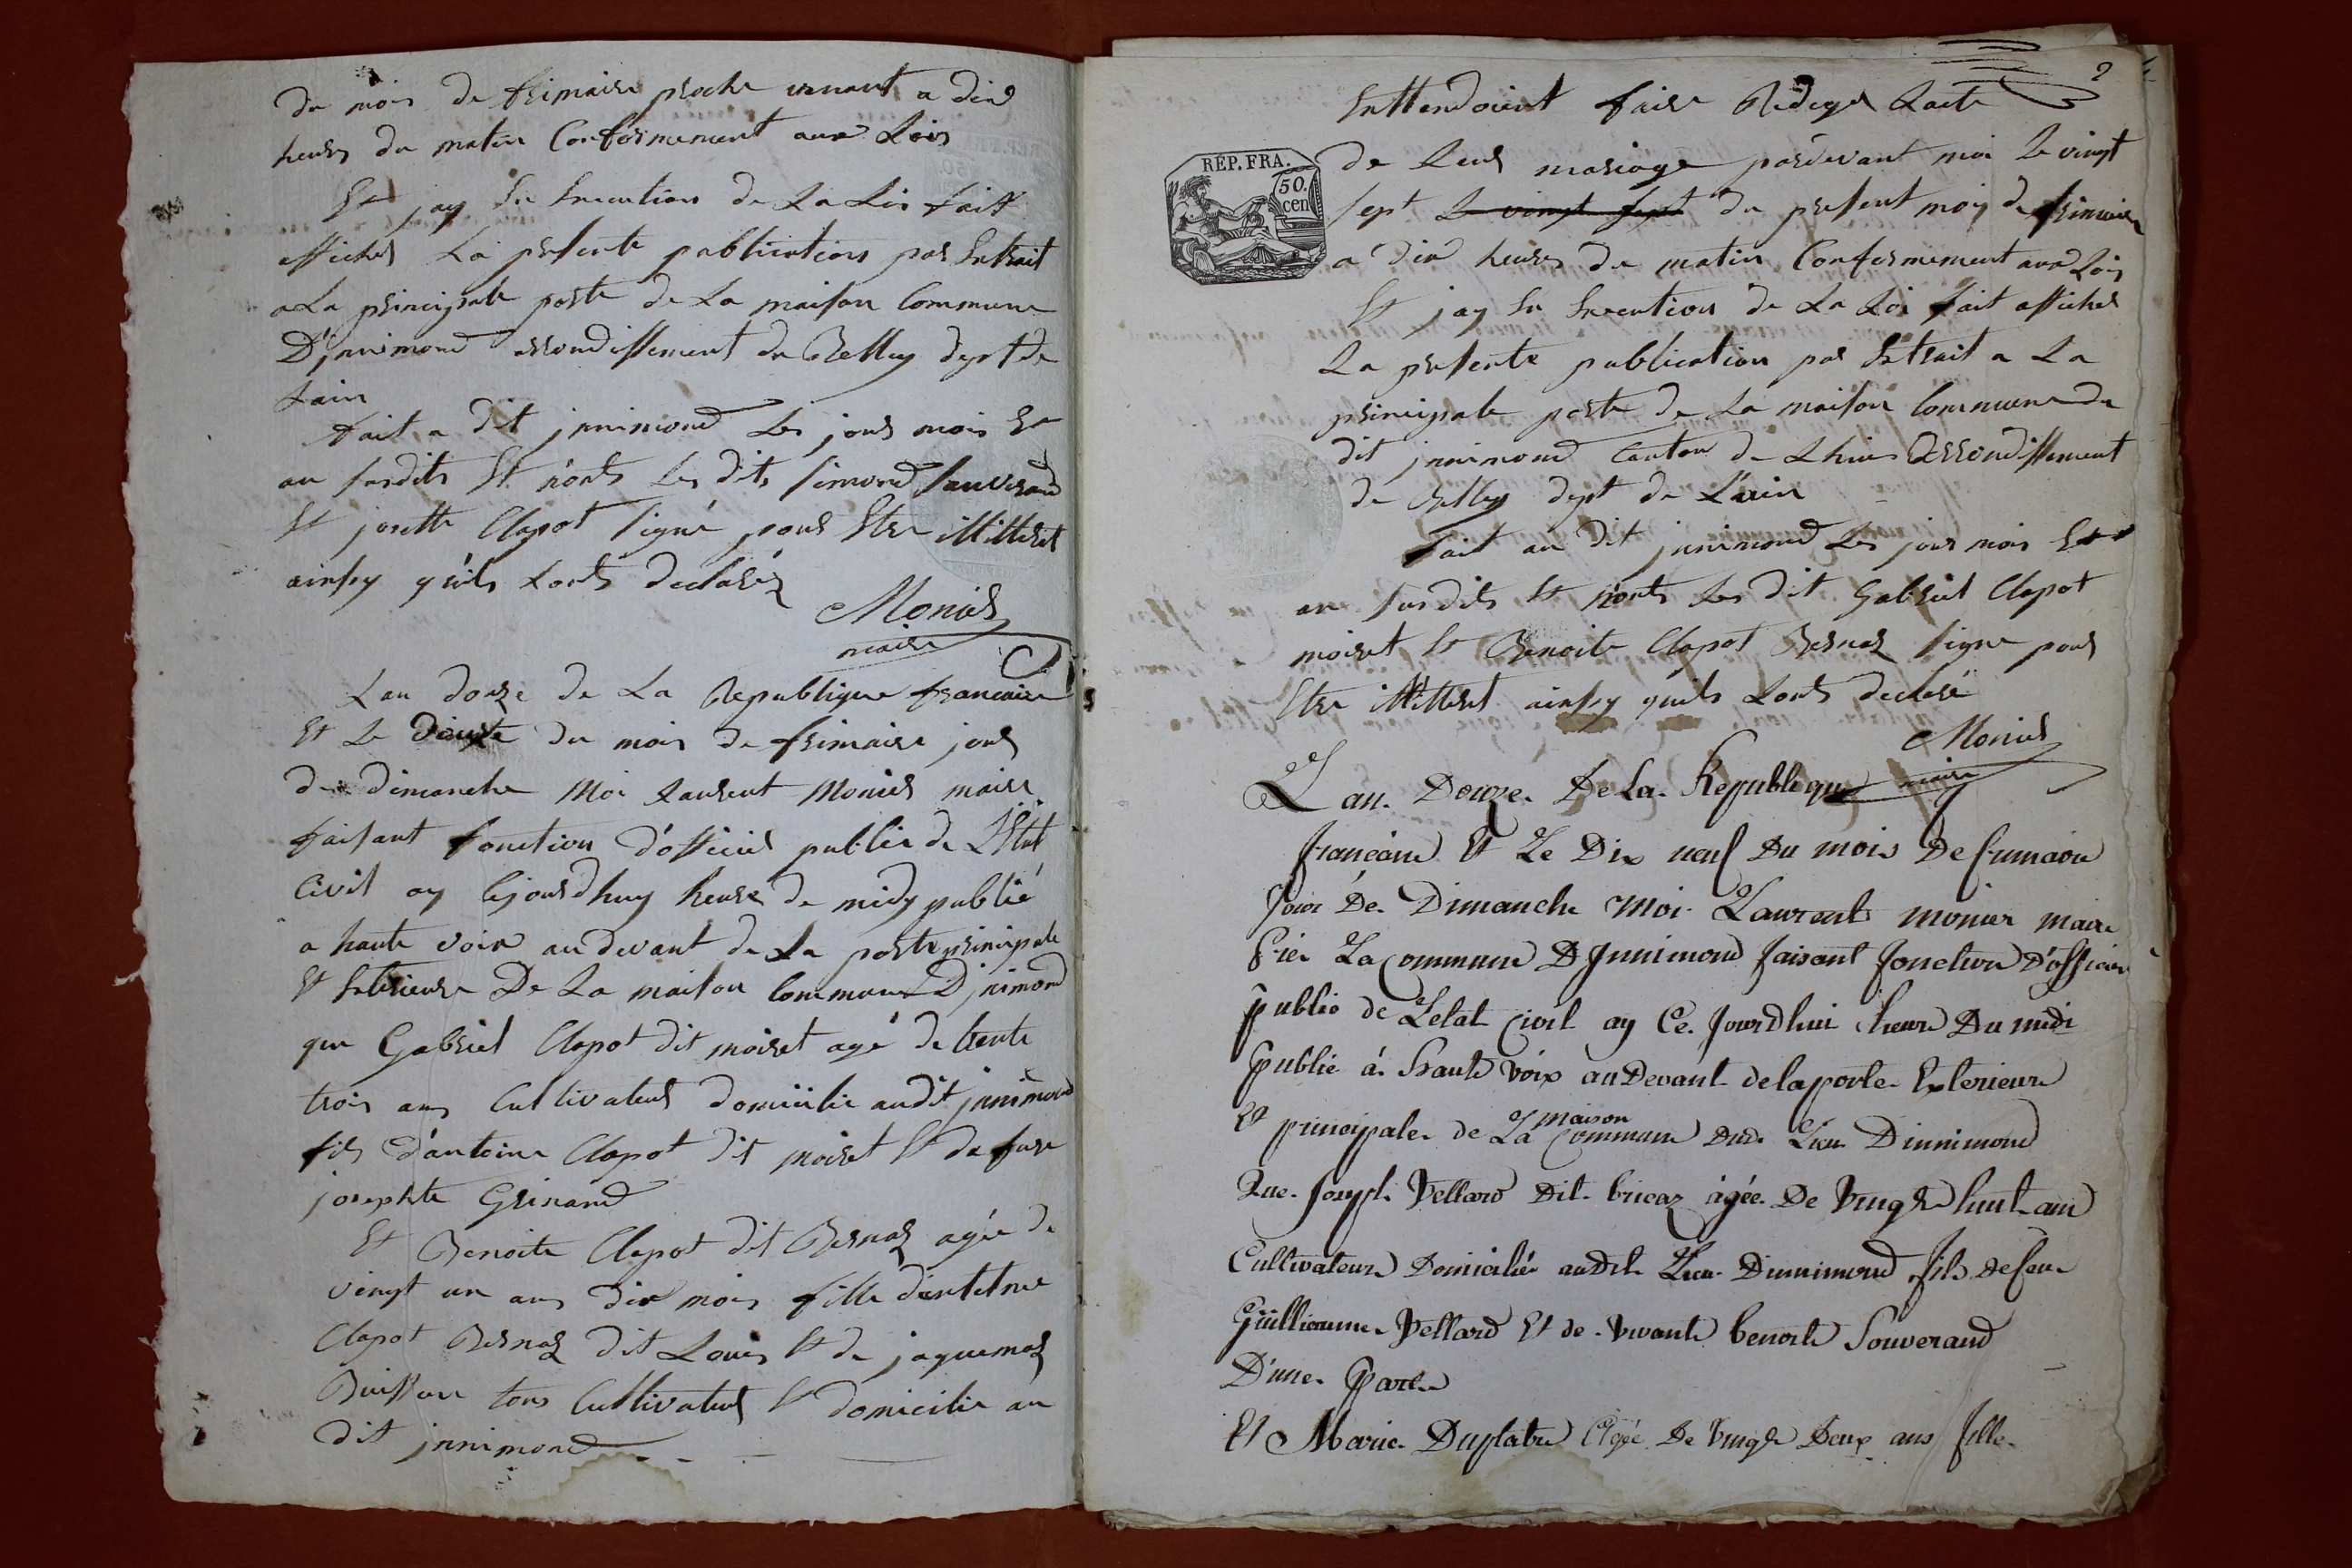 du mois de frimaire proche venant a dix
heures du matin Conformement aux Lois
Et jay En Execution de La Loi fait
afficher La presente publication par Extrait
a La principale porte de La maison Commune
D'jnnimond arrondissement de Belley dept de
Lain
fait a dit jnnimond Les jour mois Et
an susdits Et n'onts Les dits simond souverand
Et josette Clapot signé pour Etre illitteret
ainsy quils Lonts declarés
Monier
maire
Lan douze de La Republique francaise
Et Le du mois de frimaire jour
de dimanche Moi Laurent Monier maire
faisant fonction d'officier public de L'Etat
Civil ay Cejourdhuy heure de midy publié
a haute voix au devant de La porte principale
Et Exterieure De La maison Commune D'jnimond
que Gabriel Clapot dit moiret agé de trente
trois ans Cultivateur domicilie audit jnnimond
fils d'antoine Clapot dit moiret Et de fuee
josephte Grinand
Et Benoite Clapot dit Bernaz agée de
vingt un ans dix mois fille
Clapot Bernaz dit Louis Et de jaquemaz
Buisson tous Cultivateur Et domicilie au
dit jnnimond
2
Enttendoient faire Rediger Lacte
REP. FRA.
50.
cen
de Leur mariage pardevant moi Le vingt
sept Le vingt sept du present mois de frimaire
a dix heures du matin Conformement aux Lois
Et jay En Execution de La Loi fait afficher
La presente publication par Extrait a La
principale porte de La maison Commune du
dit jnnimond Canton de Lhuis Arrondissement
de Belley dept de L'ain
fait au dit jnnimond Les jour mois Et
an susdits Et n'onts Les dit Gabriel Clapot
moiret Et Benoite Clapot Bernaz signe pour
Etre illitteret ainsy quils Lonts declaré
Monier
maire
Lan Douze De La Republique
francaise Et Le Dix neuf Du mois De frimaire
Jour De Dimanche Moi Laurent monier maire
La Commune D'Jnnimond faisant fonction D'officier
public de Letat Civil ay Ce Jourdhui heure Du midi
publie á haute voix au Devant de la porte Exterieure
Et principale de La maison Commune Dud. Lieu Dinnimond
Que Joseph Vellard Dit bricaz âgée De Vingt huit ans
Cultivateur Domicilié audit Lieu Dinnimond fils de feu
Guilliaume Vellard Et de Vivante benoite Souverand
D'une Part
Et Marie Duplatre Agée De Vingt Deux ans fille